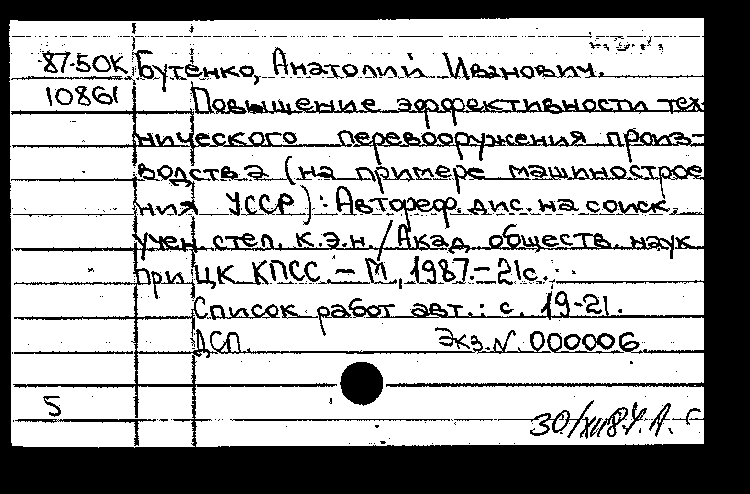 87-50К Бутенко, Анатолий Иванович.
10861 Повышение эффективности тех-
нического перевооружения произ-
водства (на примере машинострое
ния УССР): Автореф. дис. на соиск.
учен. степ. к.э.н. / Акад. обществ. наук
при ЦК КПСС. – М., 1987. – 21с.
Список работ авт.: с. 19-21.
ДСП. Экз. N. 000006.
5